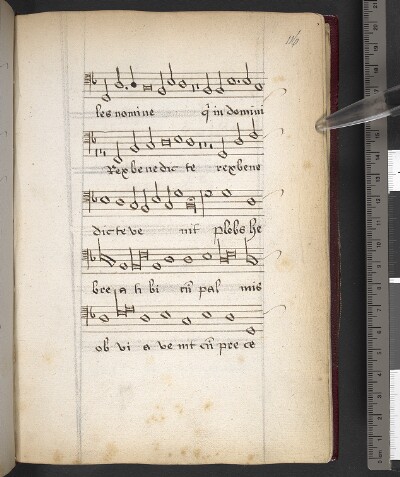 les nomine q̃ in domini
Rex bene dic te rex bene
dic te ve nit plebs he
bre a ti bi cũ pal mis
ob vi a ve nit cũ pre ce